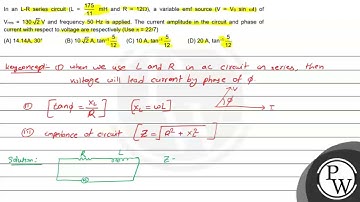 In an L-R series circuit (L = 175/11 mH and R = 12Ω), a variable emf source (V = V₀ sin ωt) of
Vrms = 130√2 V and frequency 50 Hz is applied. The current amplitude in the circuit and phase of
current with respect to voltage are respectively (Use π = 22/7)
(A) 14.14A, 30° (B) 10√2 A, tan⁻¹ 5/12 (C) 10 A, tan⁻¹ 5/12 (D) 20 A, tan⁻¹ 5/12
Keyconcept - (i) when we use L and R in ac circuit in series, then
voltage will lead current by phase of φ.
V
φ
I
(ii) [tanφ = XL/R] [XL = ωL]
(iii) impedance of circuit [Z = √R² + XL²]
Solution:
R L
Z =
P
W